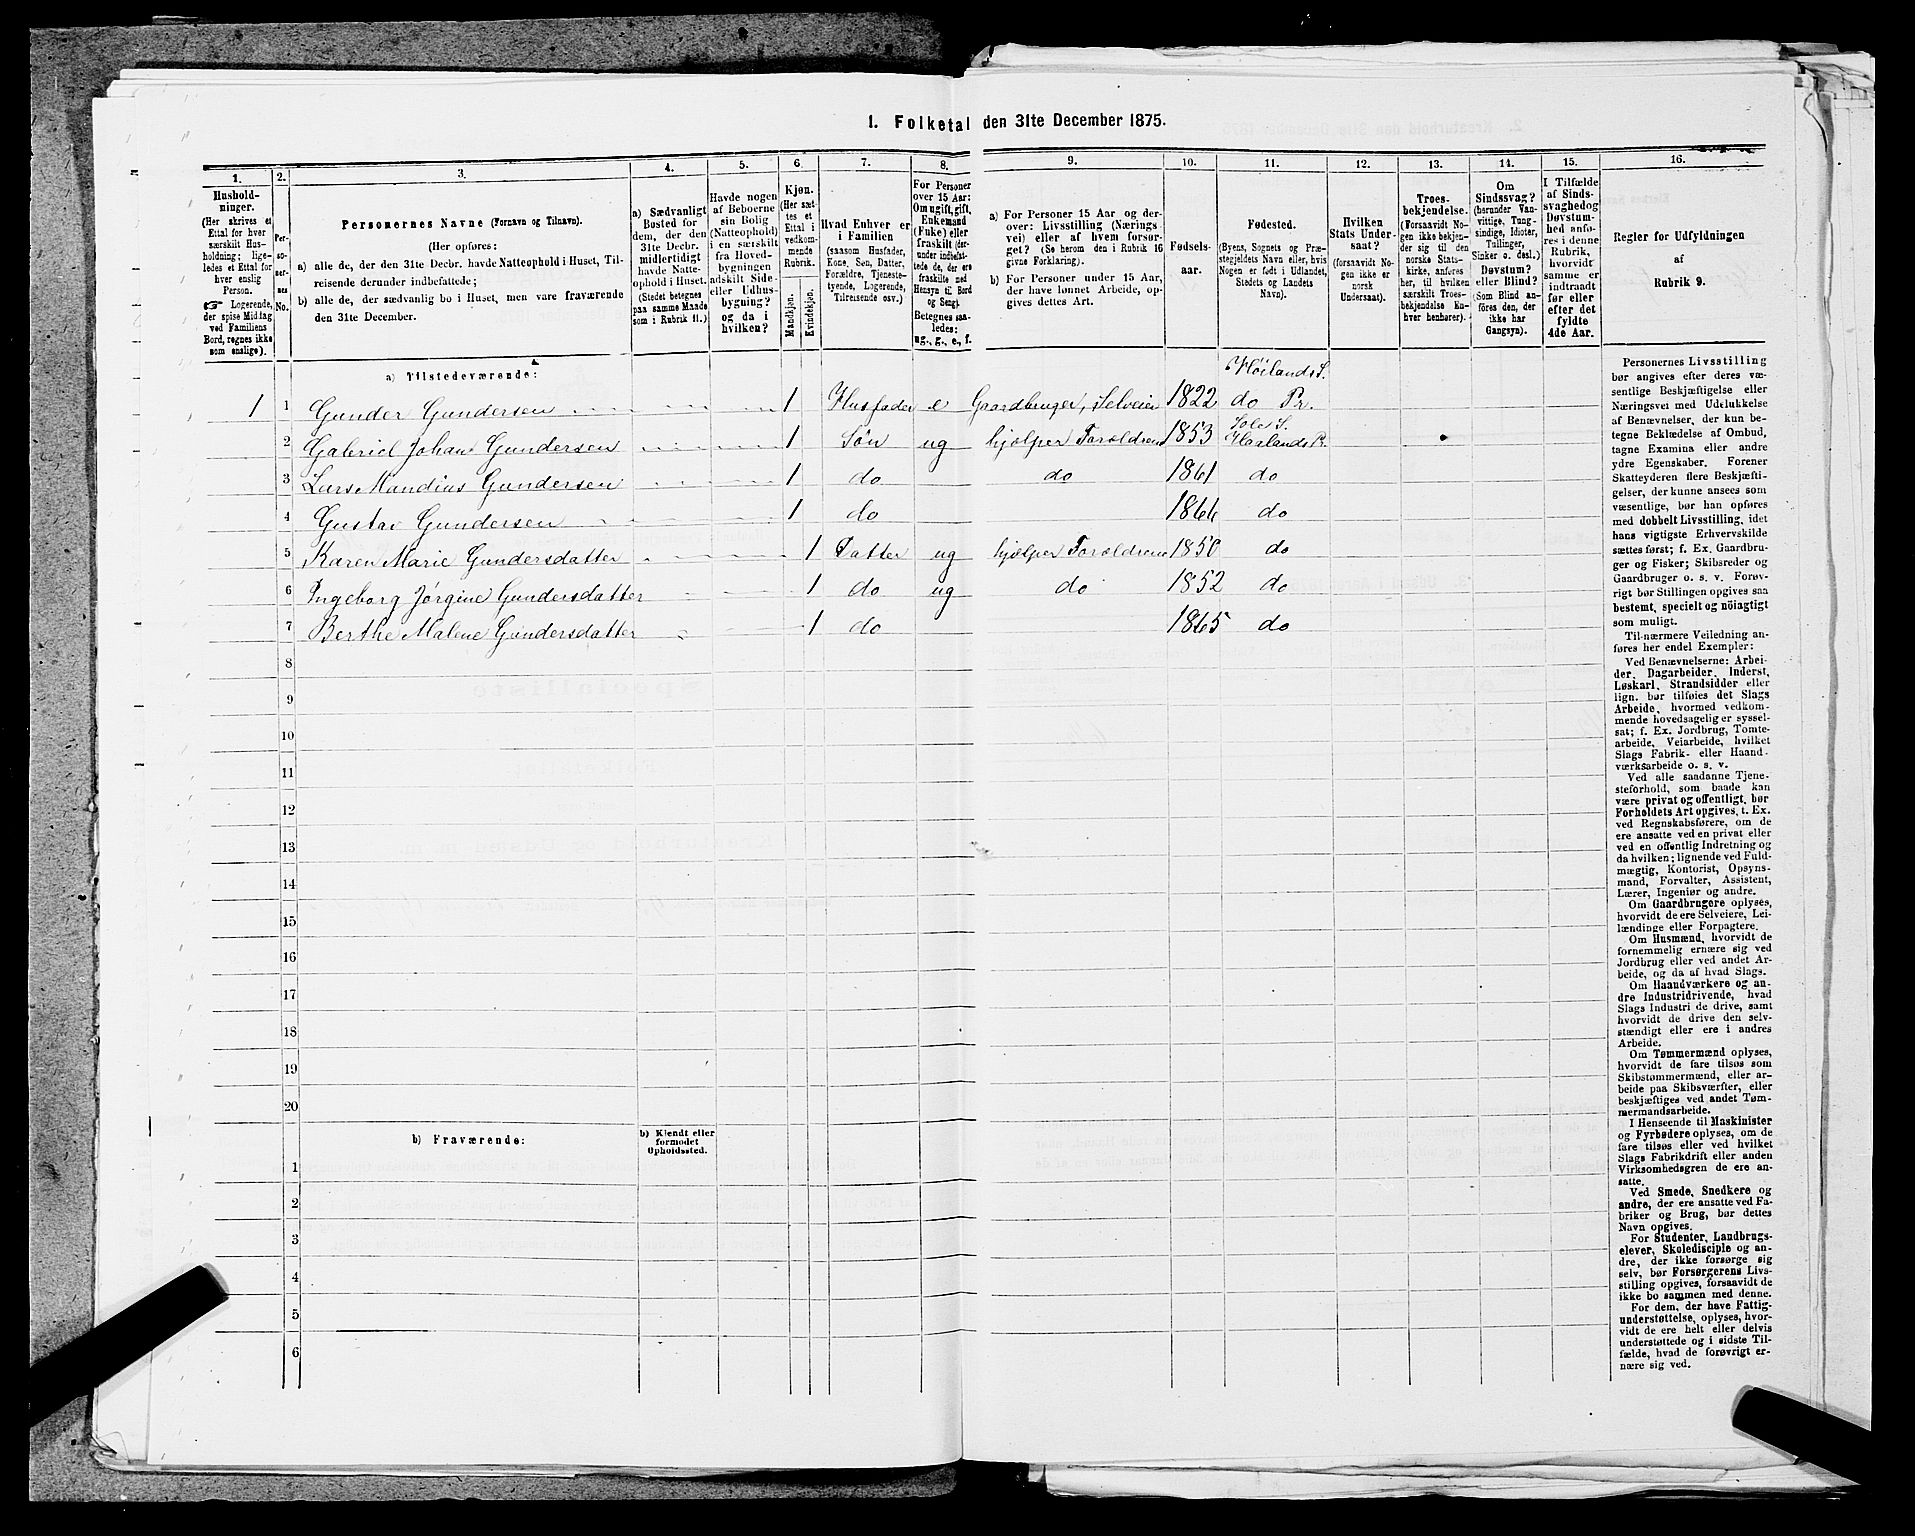 1. Folketal den 31te December 1875.
1. 2. 3. 4. 5. 6. 7. 8. 9. 10. 11. 12. 13. 14. 15. 16.
Husholdninger.
(Her skrives et
Ettal for hver
særskilt Husholdning;
ligeledes et Ettal for
hver enslig
Person.
☞ Logerende,
der spise Middag
ved Familiens
Bord, regnes ikke
som enslige).
Personernes No.
Personernes Navne (Fornavn og Tilnavn).
(Her opføres:
a) alle de, der den 31te Decbr. havde Natteophold i Huset, Tilreisende derunder indbefattede;
b) alle de, der sædvanlig bo i Huset, men vare fraværende
den 31te December.
a) Sædvanligt
Bosted for
dem, der den
31te Decbr.
midlertidigt
havde Natteophold i Huset.
(Stedet betegnes
paa samme Maade
som i Rubrik 11.)
Havde nogen
af Beboerne
sin Bolig
(Natteophold)
i en særskilt
fra Hovedbygningen
adskilt Side-
eller Udhusbygning?
og da i
hvilken?
Kjøn.
(Her sættes et
Ettal i
vedkommende
Rubrik.
Mandkjøn.
Kvindekjøn.
Hvad Enhver er
i Familien
(saasom Husfader,
Kone, Søn, Datter,
Forældre, Tjenestetyende, Logerende,
Tilreisende osv.)
For Personer
over 15 Aar:
Om ugift, gift,
Enkemand
(Enke) eller
fraskilt (derunder indbefattede de, der ere
fraskilte med
Hensyn til Bord
og Seng).
Betegnes saaledes:
ug., g., e., f.
a) For Personer 15 Aar og derover: Livsstilling (Næringsvei) eller af hvem forsørget? (Se herom den i Rubrik 16
givne Forklaring).
b) For Personer under 15 Aar,
der have lønnet Arbeide, opgives dettes Art.
Fødselsaar.
Fødested.
(Byens, Sognets og Præstegjeldets Navn eller, hvis
Nogen er født i Udlandet,
Stedets og Landets
Navn).
Hvilken
Stats Undersaat?
(forsaavidt Nogen ikke er
norsk
Undersaat).
Troesbekjendelse.
(Forsaavidt Nogen ikke bekjender sig til den
norske Statskirke, anføres
her, til hvilken
særskilt Troesbekjendelse Enhver henhører).
Om
Sindssvag?
(herunder Vanvittige, Tungsindige, Idioter,
Tullinger,
Sinker o. desl.)
Døvstum?
eller Blind?
(Som Blind anføres den, der
ikke har
Gangsyn).
I Tilfælde
af Sindssvaghed og
Døvstumhed anføres i denne
Rubrik,
hvorvidt
samme er
indtraadt
før eller
efter det
fyldte
4de Aar.
Regler for Udfyldningen
af
Rubrik 9.
a) Tilstedeværende:
Höilands S.
1 1 Gunder Gundersen 1 Husfader e Gaardbruger, Selveier 1822 do Pr.
Sole S.
2 Gabriel Johan Gundersen 1 Sön ug hjælper Forældrene 1853 Haalands Pr.
3 Lars Mandius Gundersen 1 do do 1861 do
4 Gustav Gundersen 1 do 1866 do
5 Karen Marie Gundersdatter 1 Datter ug hjælper Forældrene 1850 do
6 Ingeborg Jörgine Gundersdatter 1 do ug do 1852 do
7 Berthe Malene Gundersdatter 1 do 1865 do
8
9
10
11
12
13
14
15
16
17
18
19
20
b) Fraværende:
b) Kjendt eller
formodet
Opholdssted.
1
2
3
4
5
6
Personernes Livsstilling
bør angives efter deres væsentlige Beskjæftigelse eller
Næringsvei med Udelukkelse
af Benævnelser, der kun betegne Beklædelse af Ombud,
tagne Examina eller andre
ydre Egenskaber. Forener
Skatteyderen flere Beskjæftigelser, der kunne ansees som
væsentlige, bør han opføres
med dobbelt Livsstilling, idet
hans vigtigste Erhvervskilde
sættes først; f. Ex. Gaardbruger og Fisker; Skibsreder og
Gaardbruger o. s. v. Forøvrigt bør Stillingen opgives saa
bestemt, specielt og nöiagtigt
som muligt.
Til nærmere Veiledning anføres her endel Exempler:
Ved Benævnelserne: Arbeider, Dagarbeider, Inderst,
Løskarl, Strandsidder eller
lign. bør tilføies det Slags
Arbeide, hvormed vedkommende hovedsagelig er sysselsat; f. Ex. Jordbrug, Tomtearbeide, Veiarbeide, hvilket
Slags Fabrik- eller Haandværksarbeide o. s. v.
Ved alle saadanne Tjenesteforhold, som baade kan
være privat og offentligt, bør
Forholdets Art opgives, t. Ex.
ved Regnskabsførere, om de
ere ansatte ved en privat eller
ved en offentlig Indretning og
da hvilken; lignende ved Fuldmægtig, Kontorist, Opsynsmand, Forvalter, Assistent,
Lærer, Ingeniør og andre.
Om Gaardbrugere oplyses,
hvorvidt de ere Selveiere, Leilændinge eller Forpagtere.
Om Husmænd, hvorvidt de
fornemmelig ernære sig ved
Jordbrug eller ved andet Arbeide, og da af hvad Slags.
Om Haandværkere og andre Industridrivende, hvad
Slags Industri de drive, samt
hvorvidt de drive den selvstændigt eller ere i andres
Arbeide.
Om Tømmermænd oplyses,
hvorvidt de fare tilsøs som
Skibstømmermænd, eller arbeide paa Skibsværfter, eller
beskjæftiges ved andet Tømmermandsarbeide.
I Henseende til Maskinister
og Fyrbødere oplyses, om de
fare tilsøs eller ved hvilket
Slags Fabrikdrift eller anden
Virksomhedsgren de ere ansatte.
Ved Smede, Snedkere og
andre, der ere ansatte ved Fabriker og Brug, bør dettes
Navn opgives.
For Studenter, Landbrugselever, Skoledisciple og andre, der ikke forsørge sig
selv, bør Forsørgerens Livsstilling opgives, forsaavidt de
ikke bo sammen med denne.
For dem, der have Fattigunderstøttelse, oplyses, hvorvidt de ere helt eller delvis
understøttede og i sidste Tilfælde, hvad de forøvrigt ernære sig ved.